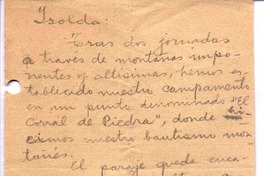 Isolda:
Tras dos jornadas
a través de montañas impo-
nentes y altísimas, hemos es-
tablecido nuestro campamento
en un punto denominado "El
Corral de Piedra", donde hi-
cimos nuestro bautismo mon-
tañés.
El paraje quede